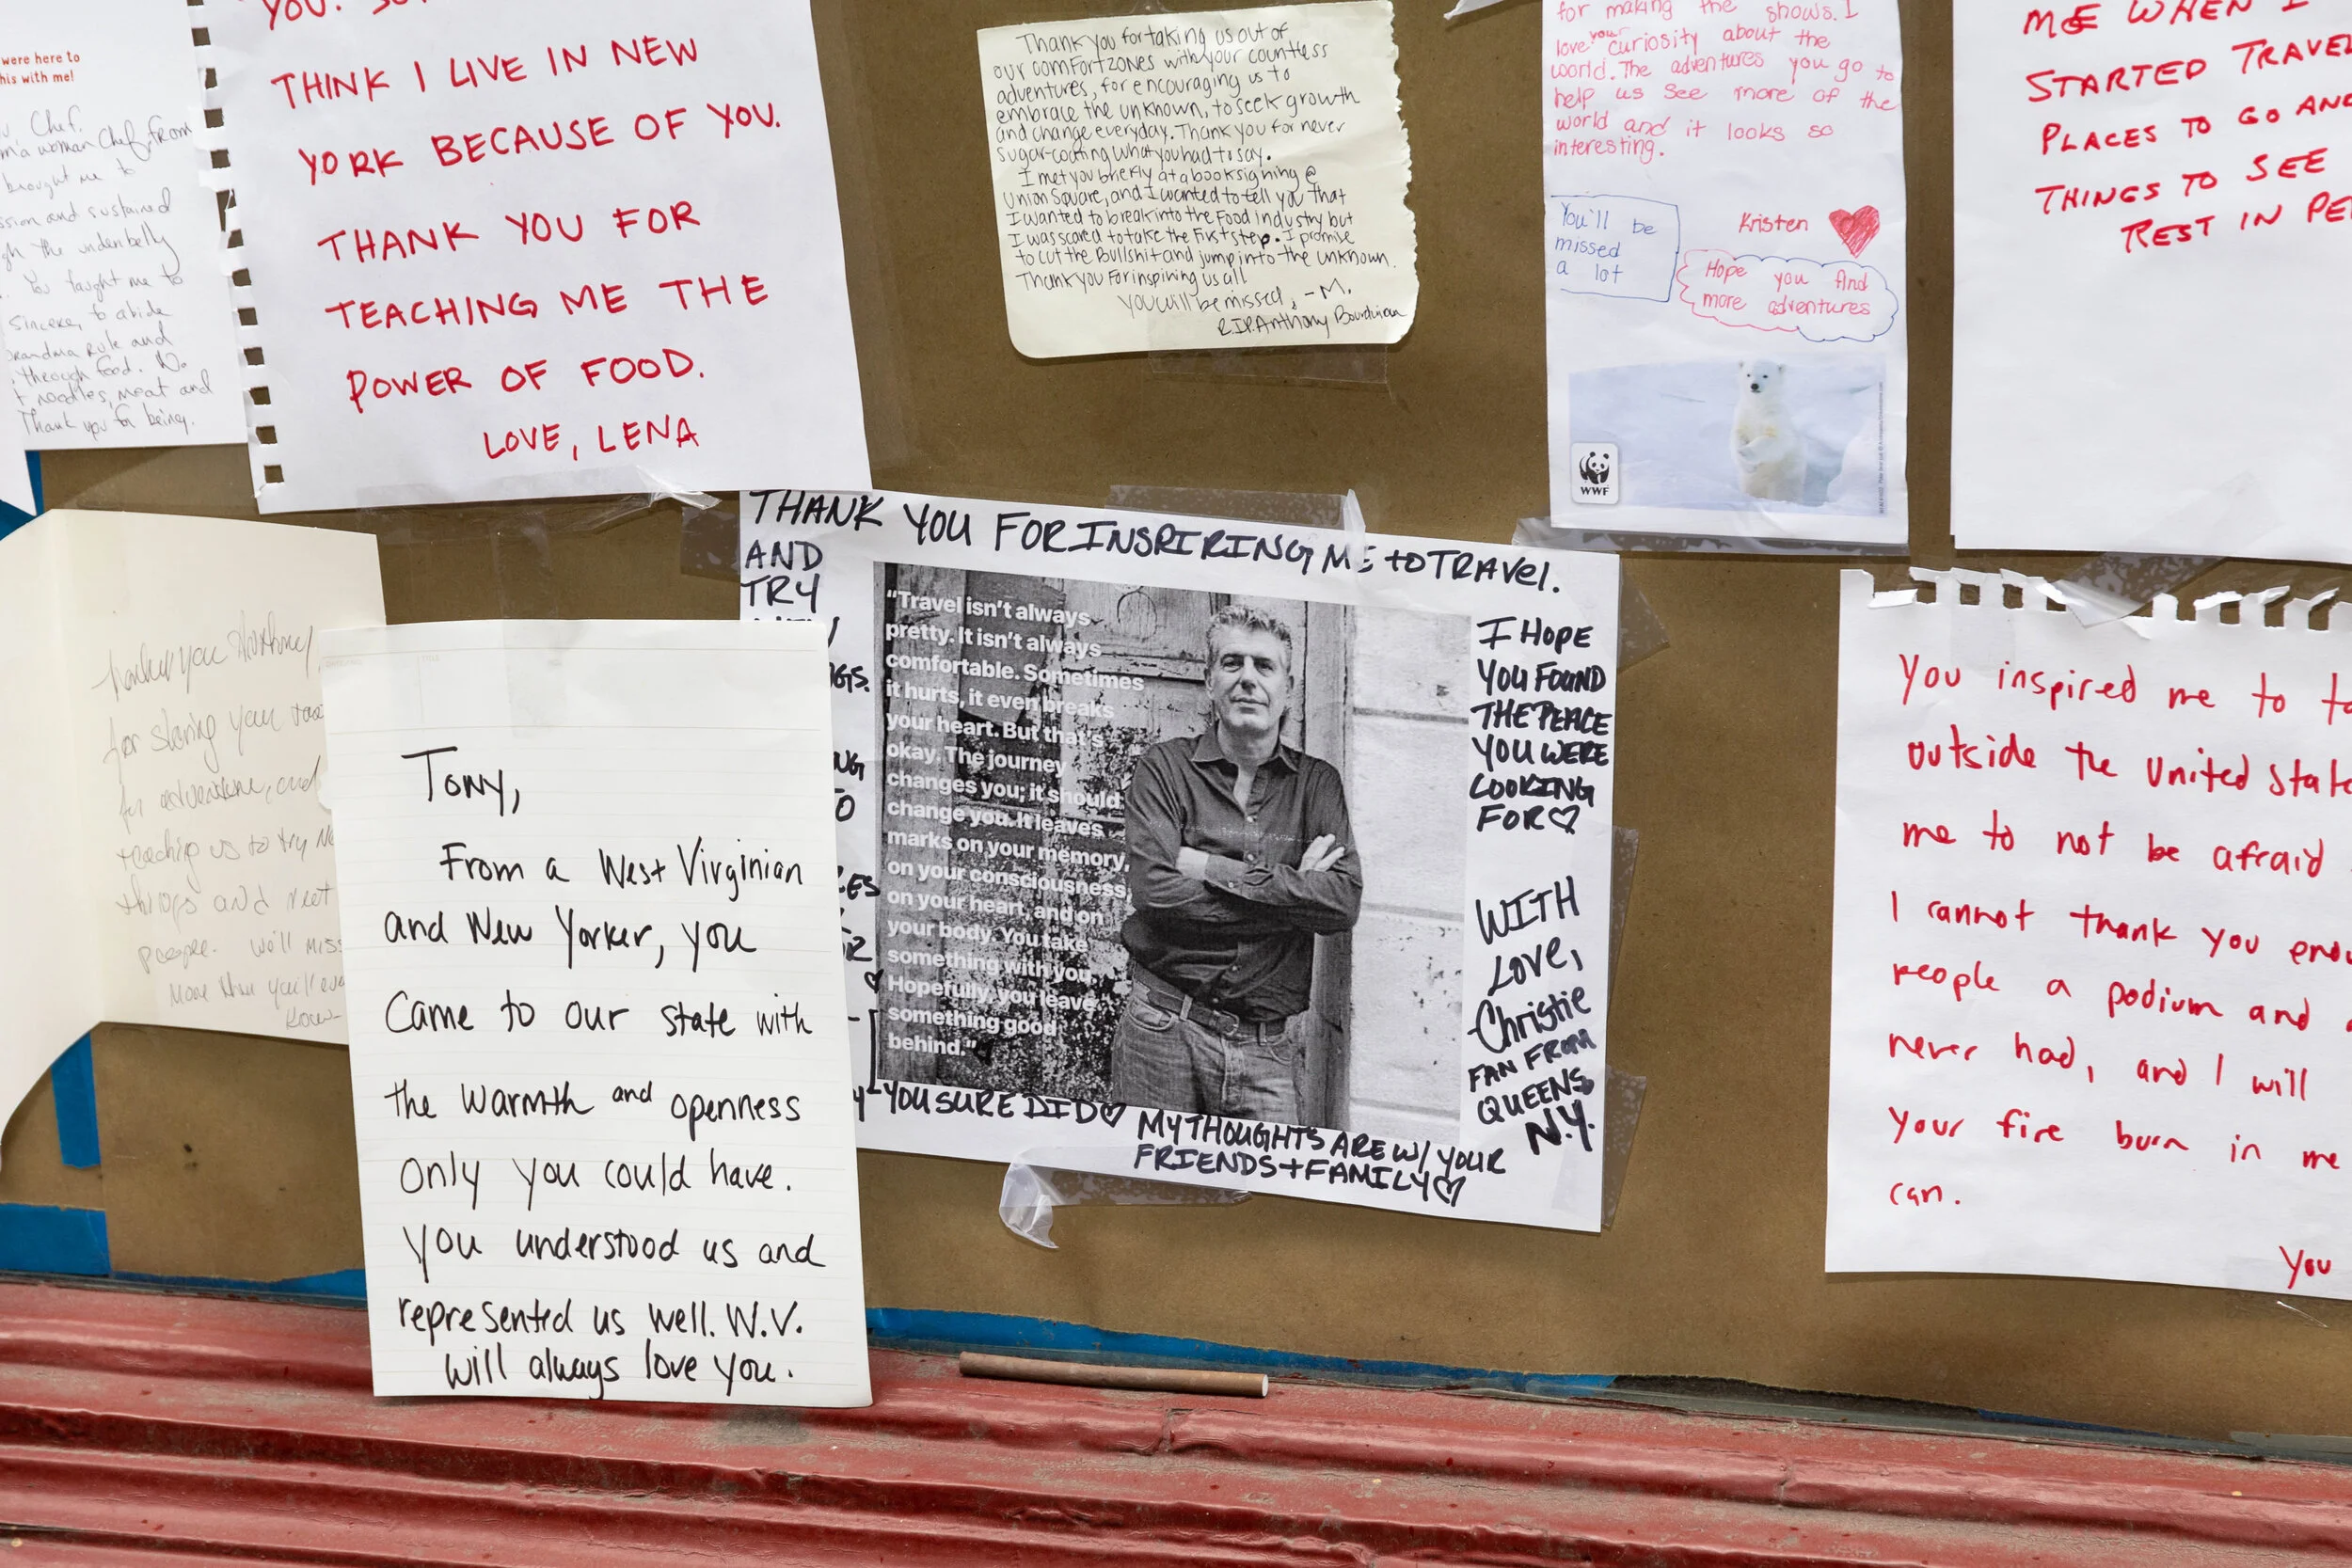 were here to
his with me!
Chef.
a woman Chef, from
brought me to
ssion and sustained
the underbelly
You taught me to
sincere, to abide
Grandma Rule and
through food. No
noodles, meat and
Thank you for being.
YOU.
THINK I LIVE IN NEW
YORK BECAUSE OF YOU.
THANK YOU FOR
TEACHING ME THE
POWER OF FOOD.
LOVE, LENA
Thank you for taking us out of
our comfort zones with your countless
adventures, for encouraging us to
embrace the unknown, to seek growth
and change everyday. Thank you for never
sugar-coating what you had to say.
I met you briefly at a book signing @
Union Square, and I wanted to tell you that
I wanted to break into the Food industry but
I was scared to take the first step. I promise
to cut the Bullshit and jump into the unknown.
Thank you For inspiring us all
You will be missed, -M.
R.I.P. Anthony Bourdinan
for making the shows. I
love your curiosity about the
world. The adventures you go to
help us see more of the
world and it looks so
interesting.
You'll be
missed
a lot
Kristen
Hope you find
more adventures
WWF
ME WHEN I
STARTED TRAVEL
PLACES TO GO AND
THINGS TO SEE
REST IN PE
Thank you Anthony,
for sharing your
for adventure, and
teaching us to try Ne
things and meet
people. We'll miss
More than you'll
Tony,
From a West Virginian
and New Yorker, you
Came to our state with
the warmth and openness
only you could have.
You understood us and
represented us well. W.V.
will always love you.
THANK YOU FOR INSPIRING ME to TRAVEl.
AND
TRY
GS.
NG
TO
ES
"Travel isn't always
pretty. It isn't always
comfortable. Sometimes
it hurts, it even breaks
your heart. But that's
okay. The journey
changes you; it should
change you. It leaves
marks on your memory,
on your consciousness,
on your heart, and on
your body. You take
something with you.
Hopefully, you leave
something good
behind."
I HOPE
YOU FOUND
THE PEACE
YOU WERE
LOOKING
FOR♡
WITH
Love,
Christie
FAN FROM
QUEENS,
N.Y.
YOU SURE DID♡
MY THOUGHTS ARE W/ YOUR
FRIENDS + FAMILY♡
You inspired me to t
outside the United State
me to not be afraid
I cannot thank you enou
people a podium and
never had, and I will
your fire burn in me
can.
You